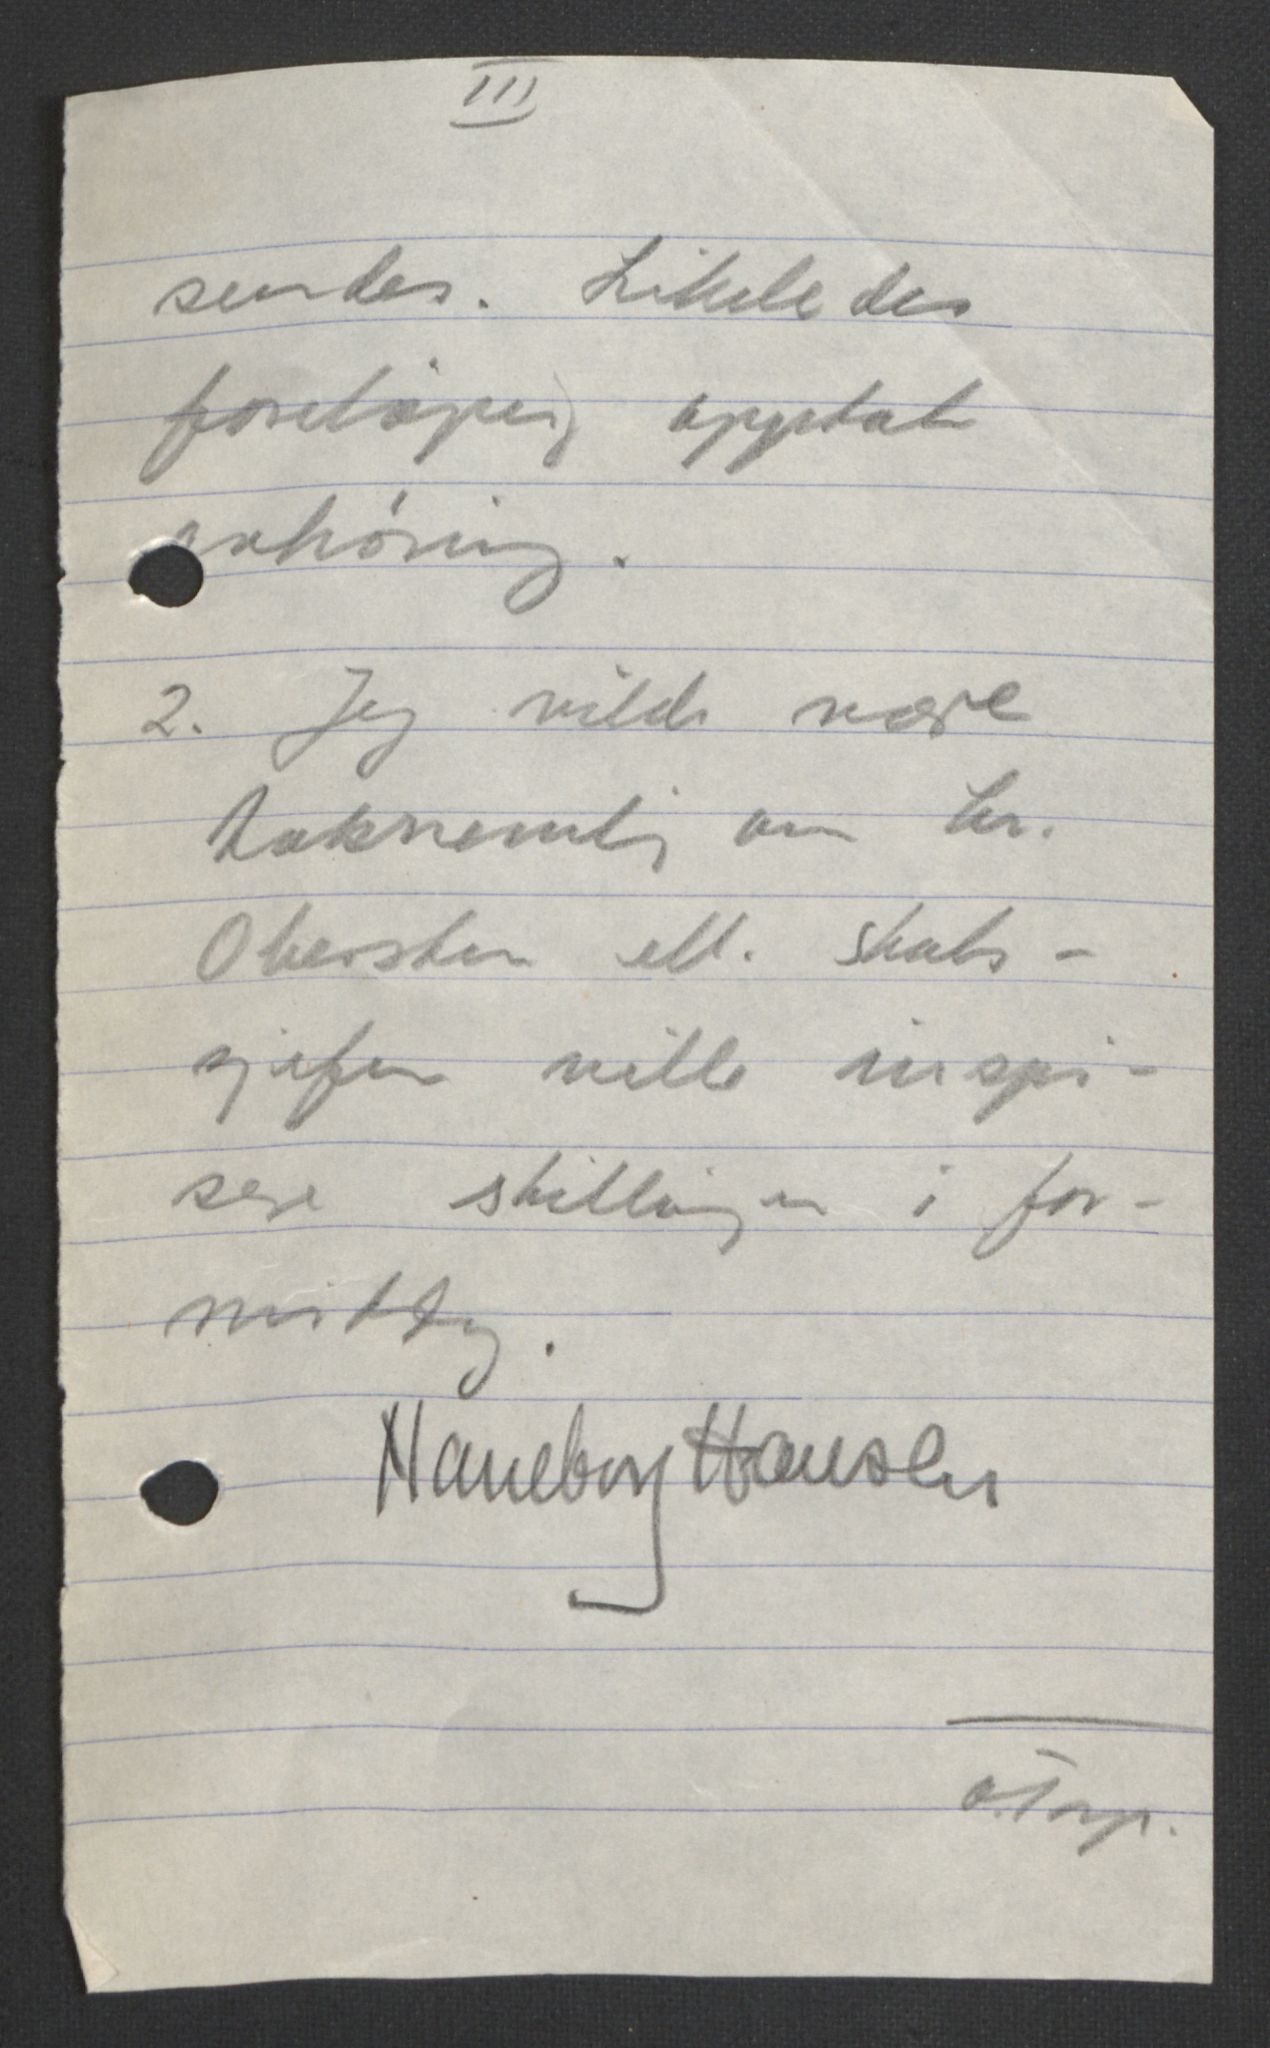 III
sendes. Likeledes
foreløpig opptatt
avhöring.
2. Jeg vilde være
taknemlig om hr.
Obersten ell. stabs-
sjefen ville inspi-
sere stillingen i for-
middag.
Haneborg Hansen
o. Torp.